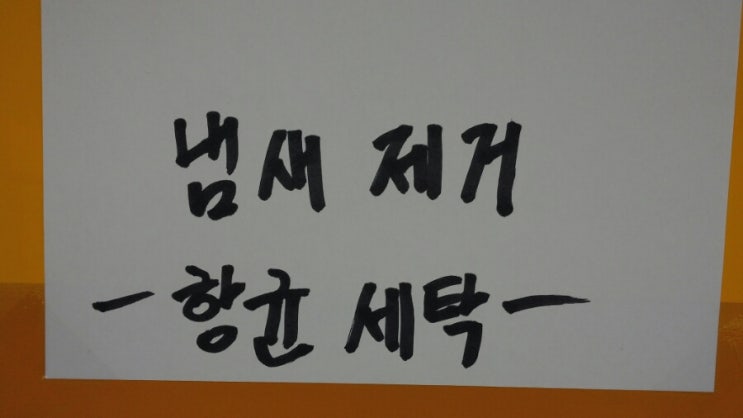 냄새 제거
- 항균 세탁 -